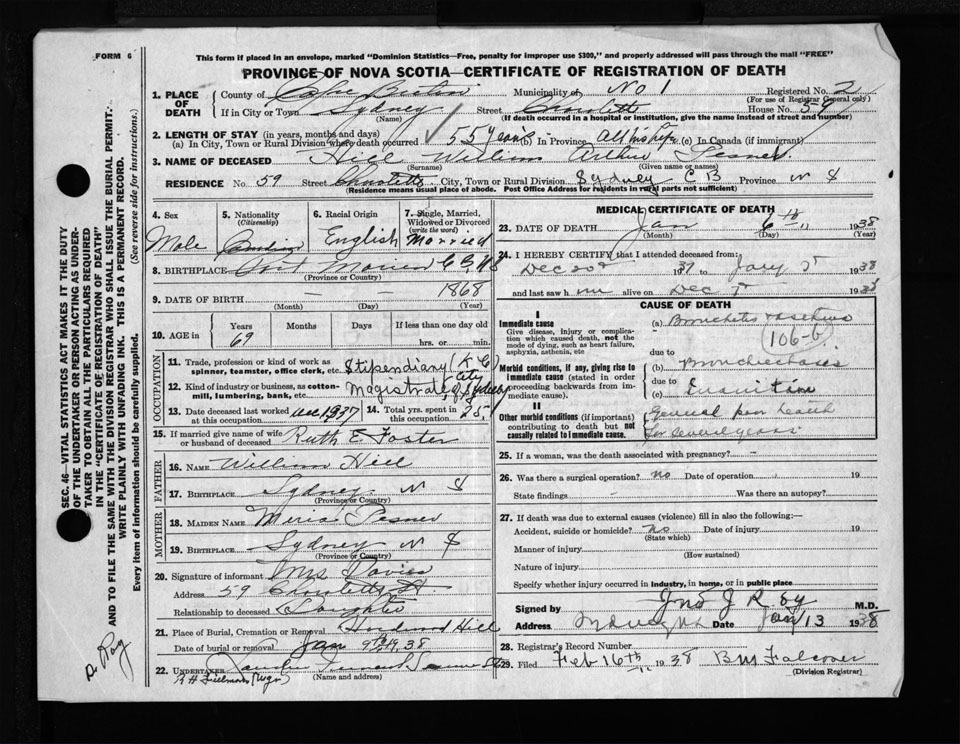 FORM 6
This form if placed in an envelope, marked "Dominion Statistics—Free, penalty for improper use $300," and properly addressed will pass through the mail "FREE"
PROVINCE OF NOVA SCOTIA—CERTIFICATE OF REGISTRATION OF DEATH
1. PLACE OF DEATH
County of Cape Breton Municipality of No 1 Registered No. 2
(For use of Registrar General only)
If in City or Town Sydney Street Charlotte House No. 59
(Name) (If death occurred in a hospital or institution, give the name instead of street and number)
2. LENGTH OF STAY (in years, months and days)
(a) In City, Town or Rural Division where death occurred 55 Years (b) In Province All his life (c) In Canada (if immigrant)
3. NAME OF DECEASED Hill William Arthur
(Surname) (Given name or names)
RESIDENCE No. 59 Street Charlotte City, Town or Rural Division Sydney C B Province N S
(Residence means usual place of abode. Post Office Address for residents in rural parts not sufficient)
4. Sex
Male
5. Nationality
(Citizenship)
Canadian
6. Racial Origin
English
7. Single, Married, Widowed or Divorced
(write the word)
Married
8. BIRTHPLACE Port Morien C B, N S
(Province or Country)
9. DATE OF BIRTH – – 1868
(Month) (Day) (Year)
10. AGE in
Years Months Days If less than one day old
69 hrs. or min.
OCCUPATION
11. Trade, profession or kind of work as spinner, teamster, office clerk, etc. Stipendiary (K C)
12. Kind of industry or business, as cotton-mill, lumbering, bank, etc. Magistrate, City of Sydney
13. Date deceased last worked at this occupation Dec 1937 14. Total yrs. spent in this occupation 25
15. If married give name of wife or husband of deceased Ruth E Foster
FATHER
16. NAME William Hill
17. BIRTHPLACE Sydney N S
(Province or Country)
MOTHER
18. MAIDEN NAME
19. BIRTHPLACE Sydney N S
(Province or Country)
20. Signature of informant Mrs Davies
Address 59 Charlotte St
Relationship to deceased Daughter
21. Place of Burial, Cremation or Removal Hardwood Hill
Date of burial or removal Jan 9th 1938
22. UNDERTAKER
(Name and address)
MEDICAL CERTIFICATE OF DEATH
23. DATE OF DEATH Jan 6th 1938
(Month) (Day) (Year)
24. I HEREBY CERTIFY that I attended deceased from:
Dec 1937 to Jany 5 1938
and last saw him alive on Dec 5 1938
CAUSE OF DEATH
I
Immediate cause
Give disease, injury or complication which caused death, not the mode of dying, such as heart failure, asphyxia, asthenia, etc
(a) Bronchitis
106-b
due to
Morbid conditions, if any, giving rise to immediate cause (stated in order proceeding backwards from immediate cause).
(b) Bronchiectasis
due to
(c) Inanition
II
Other morbid conditions (if important) contributing to death but not causally related to immediate cause.
General poor health
for several years
25. If a woman, was the death associated with pregnancy? –
26. Was there a surgical operation? no Date of operation 19
State findings – Was there an autopsy?
27. If death was due to external causes (violence) fill in also the following:—
Accident, suicide or homicide? no Date of injury 19
(State which)
Manner of injury
(How sustained)
Nature of injury
Specify whether injury occurred in industry, in home, or in public place
Signed by Jno J Roy M.D.
Address Date Jany 13 1938
28. Registrar's Record Number
29. Filed Feb 16th 1938 B M Falconer
(Division Registrar)
SEC. 46—VITAL STATISTICS ACT MAKES IT THE DUTY OF THE UNDERTAKER OR PERSON ACTING AS UNDERTAKER TO OBTAIN ALL THE PARTICULARS REQUIRED IN THE "CERTIFICATE OF REGISTRATION OF DEATH" AND TO FILE THE SAME WITH THE DIVISION REGISTRAR WHO SHALL ISSUE THE BURIAL PERMIT.
(See reverse side for instructions.)
WRITE PLAINLY WITH UNFADING INK. THIS IS A PERMANENT RECORD.
Every item of information should be carefully supplied.